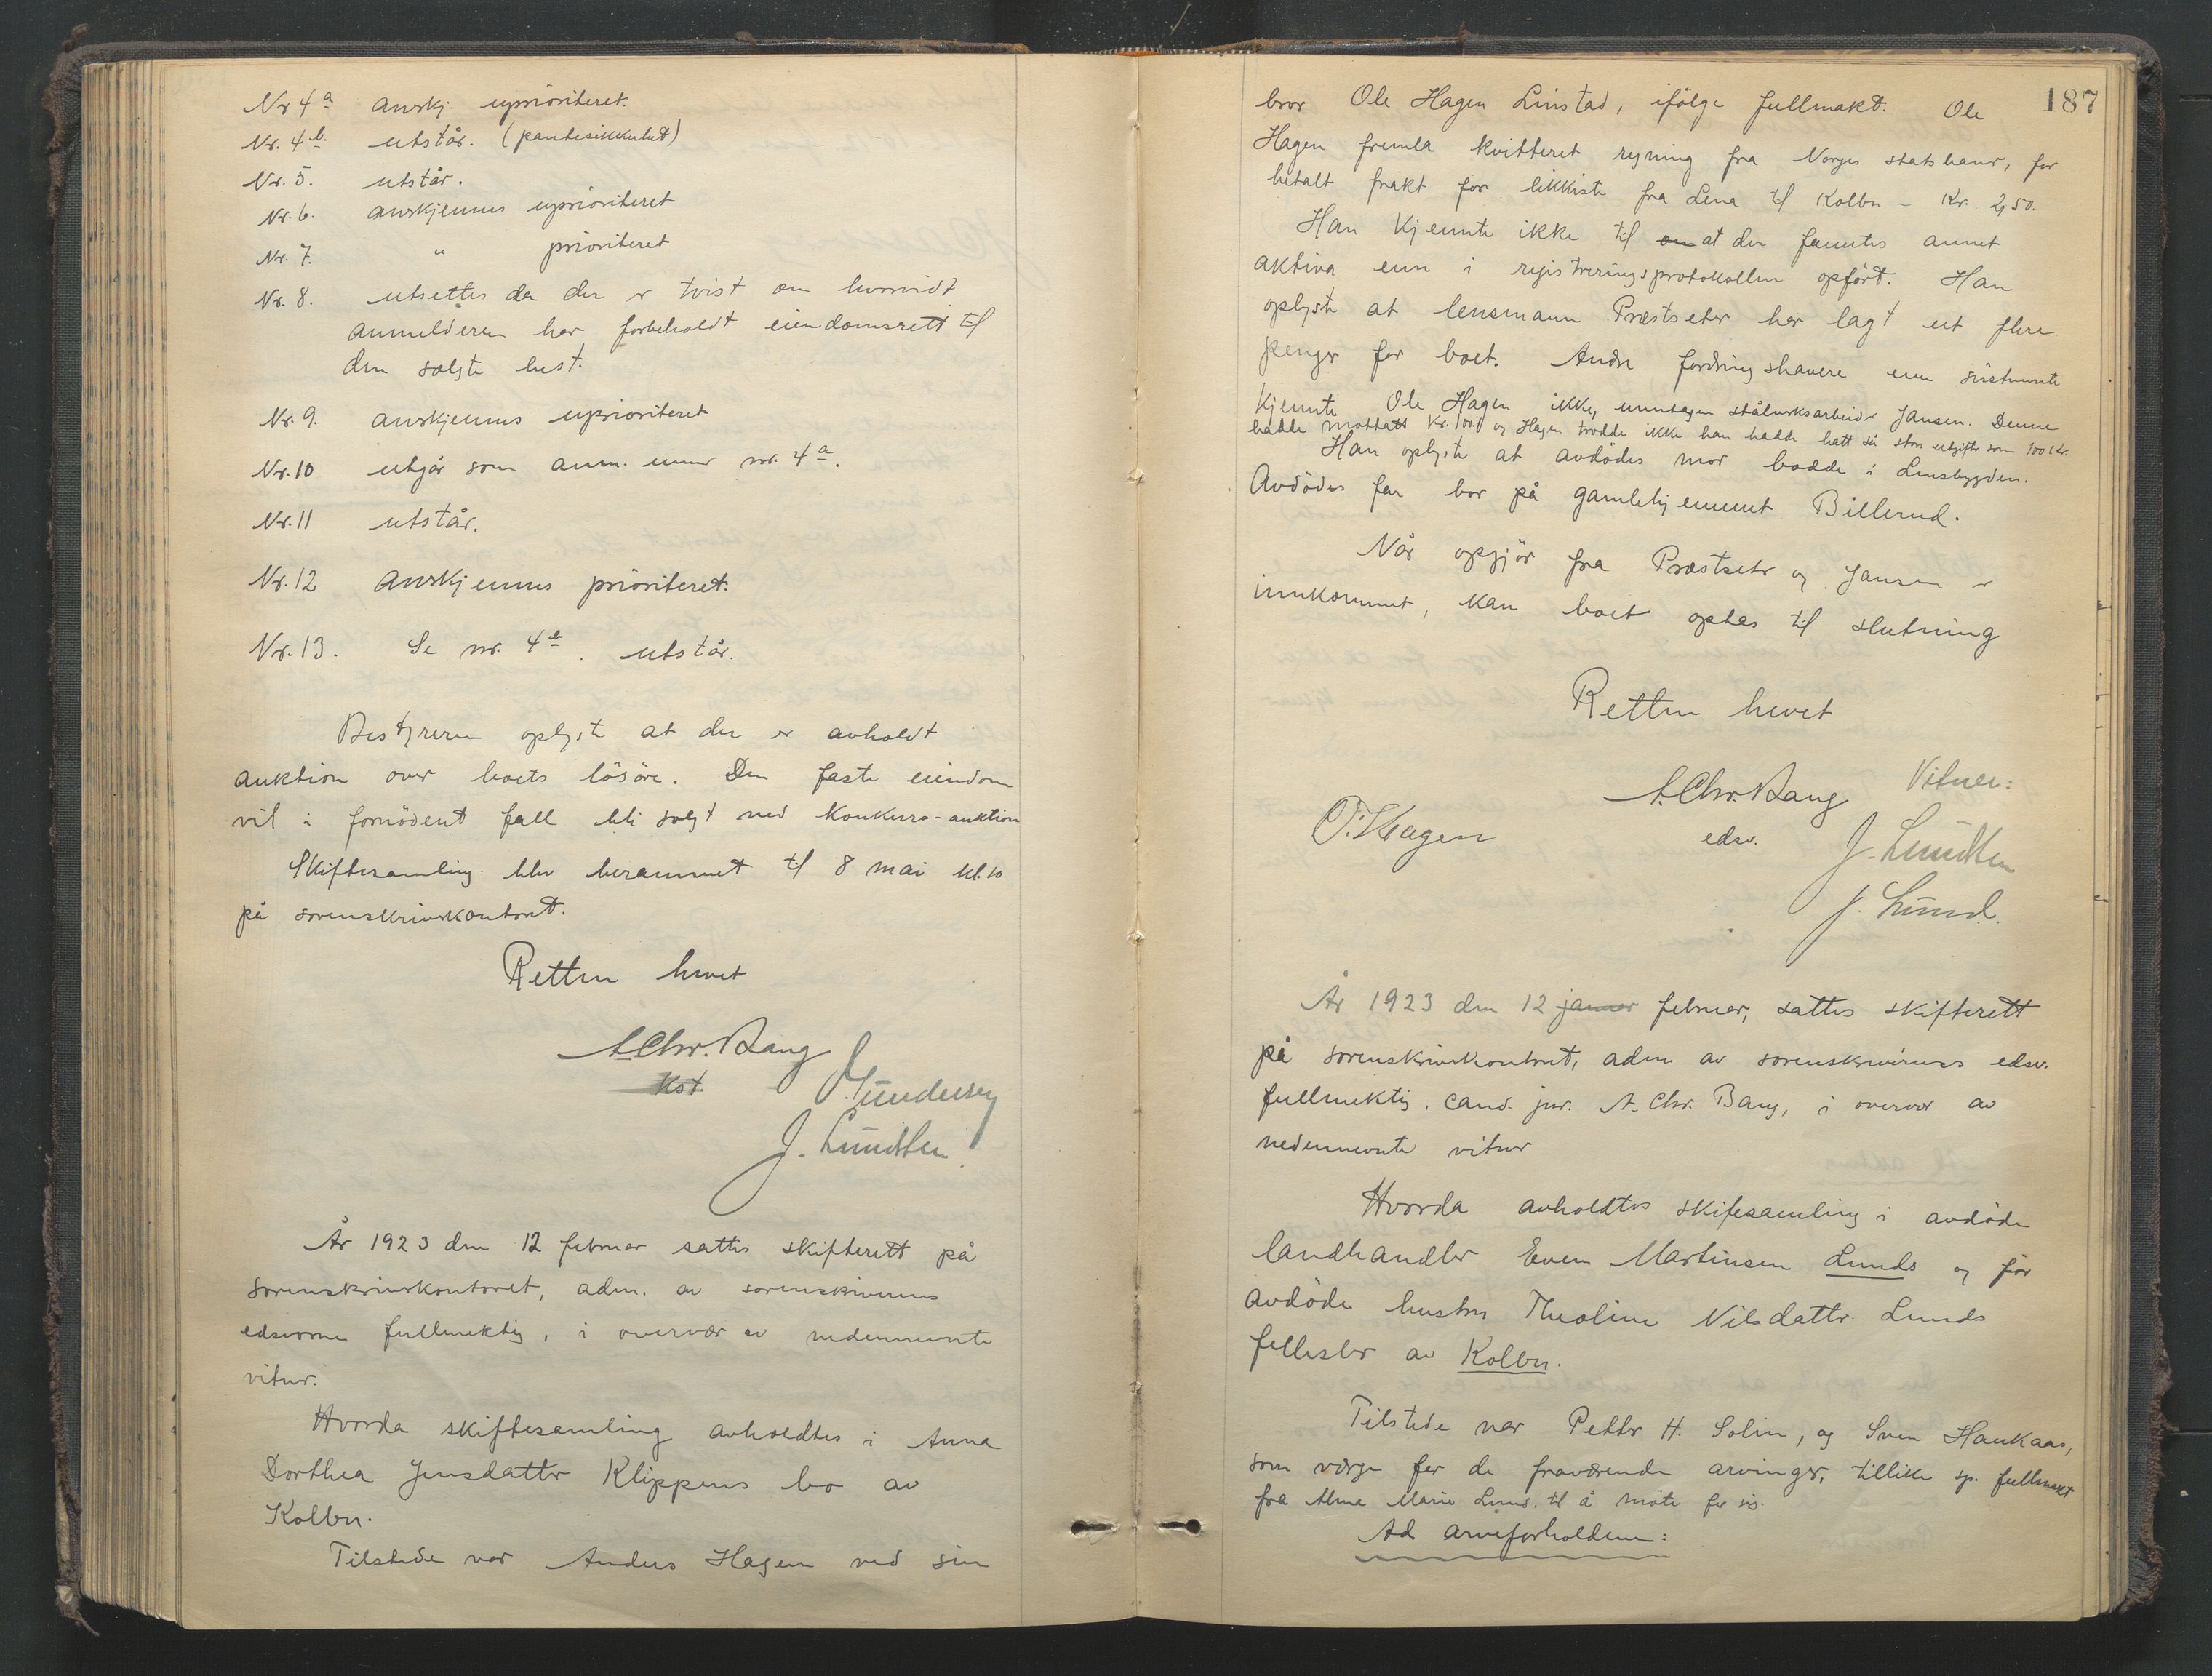 Nr 4a anerkj. uprioriteret.
Nr. 4b. utstår. (pantesikkerhet)
Nr. 5. utstår.
Nr. 6. anerkjennes uprioriteret
Nr. 7. " prioriteret
Nr. 8. utsettes da der er tvist om hvorvidt
anmelderen har forbeholdt eiendomsrett til
den solgte hest.
Nr. 9. anerkjennes uprioriteret
Nr. 10 utgår som anm. under nr. 4a.
Nr. 11 utstår.
Nr. 12 anerkjennes prioriteret.
Nr. 13. Se nr. 4b. utstår.
Bestyreren oplyste at der er avholdt
auktion over boets løsöre. Den faste eiendom
vil i fornødent fall bli solgt ved konkurs-auktion
Skiftesamling blev berammet til 8 mai kl. 10
på sorenskriverkontoret.
Retten hevet
A. Chr. Bang
Kst.
J. Lundsten
År 1923 den 12 februar sattes skifterett på
sorenskriverkontoret, adm. av sorenskriverens
edsvorne fullmektig, i overvær av nedennevnte
vitner.
Hvorda skiftesamling avholdtes i Anna
Dorthea Jensdatter Klippens bo av
Kolbu.
Tilstede var Anders Hagen ved sin
187
bror Ole Hagen Linstad, ifölge fullmakt. Ole
Hagen fremla kvitteret regning fra Norges statsbaner, for
betalt frakt for likkiste fra Lena til Kolbu - Kr. 2,50.
Han kjennte ikke til om at der fanntes annet
aktiva enn i registreringsprotokollen opfört. Han
oplyste at lensmann Præstseter har lagt ut flere
penger for boet. Andre fordringshavere enn sistnevnte
kjennte Ole Hagen ikke, unntagen stålverksarbeider Jansen. Denne
hadde mottatt Kr. 100. og Hagen trodde ikke han hadde hatt så store utgifter som 100 kr.
Han oplyste at avdödes mor bodde i Lensbygden.
Avdödes far bor på gamlehjemmet Billerud.
Når opgjör fra Præstseter og Jansen er
innkommet, kan boet optas til slutning
Retten hevet
A. Chr. Bang
edsv.
Vitner:
O. Hagen
J. Lundsten
J. Lund.
År 1923 den 12 januar februar, sattes skifterett
på sorenskriverkontoret, adm av sorenskriverens edsv.
fullmektig, cand. jur. A. Chr. Bang, i overvær av
nedennevnte vitner
Hvorda avholdtes skiftesamling i avdöde
landhandler Even Martinsen Lunds og før
avdöde hustru Theoline Nilsdatter Lunds
fellesbo av Kolbu.
Tilstede var Petter H. Solin, og Sven Haukaas,
som verge for de fraværende arvinger, tillike sp. fullmakt
fra Alma Marie Lund. til å møte for sig.
Ad arveforholdene: